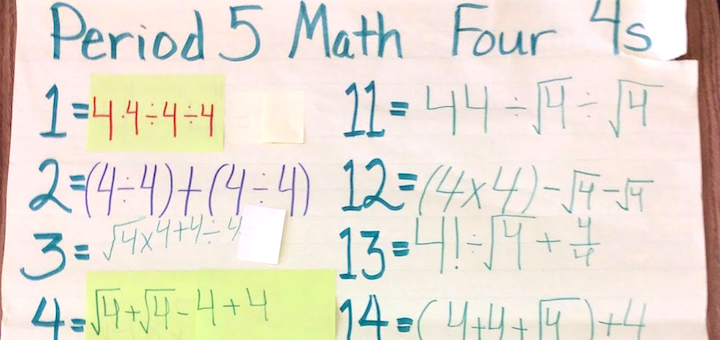 Period 5 Math Four 4s
1=4·4÷4÷4
2=(4÷4)+(4÷4)
3=√4×4+4÷4
4=√4+√4-4+4
11=44÷√4÷√4
12=(4x4)-√4-√4
13=4!÷√4+4/4
14=(4+4+√4)+4